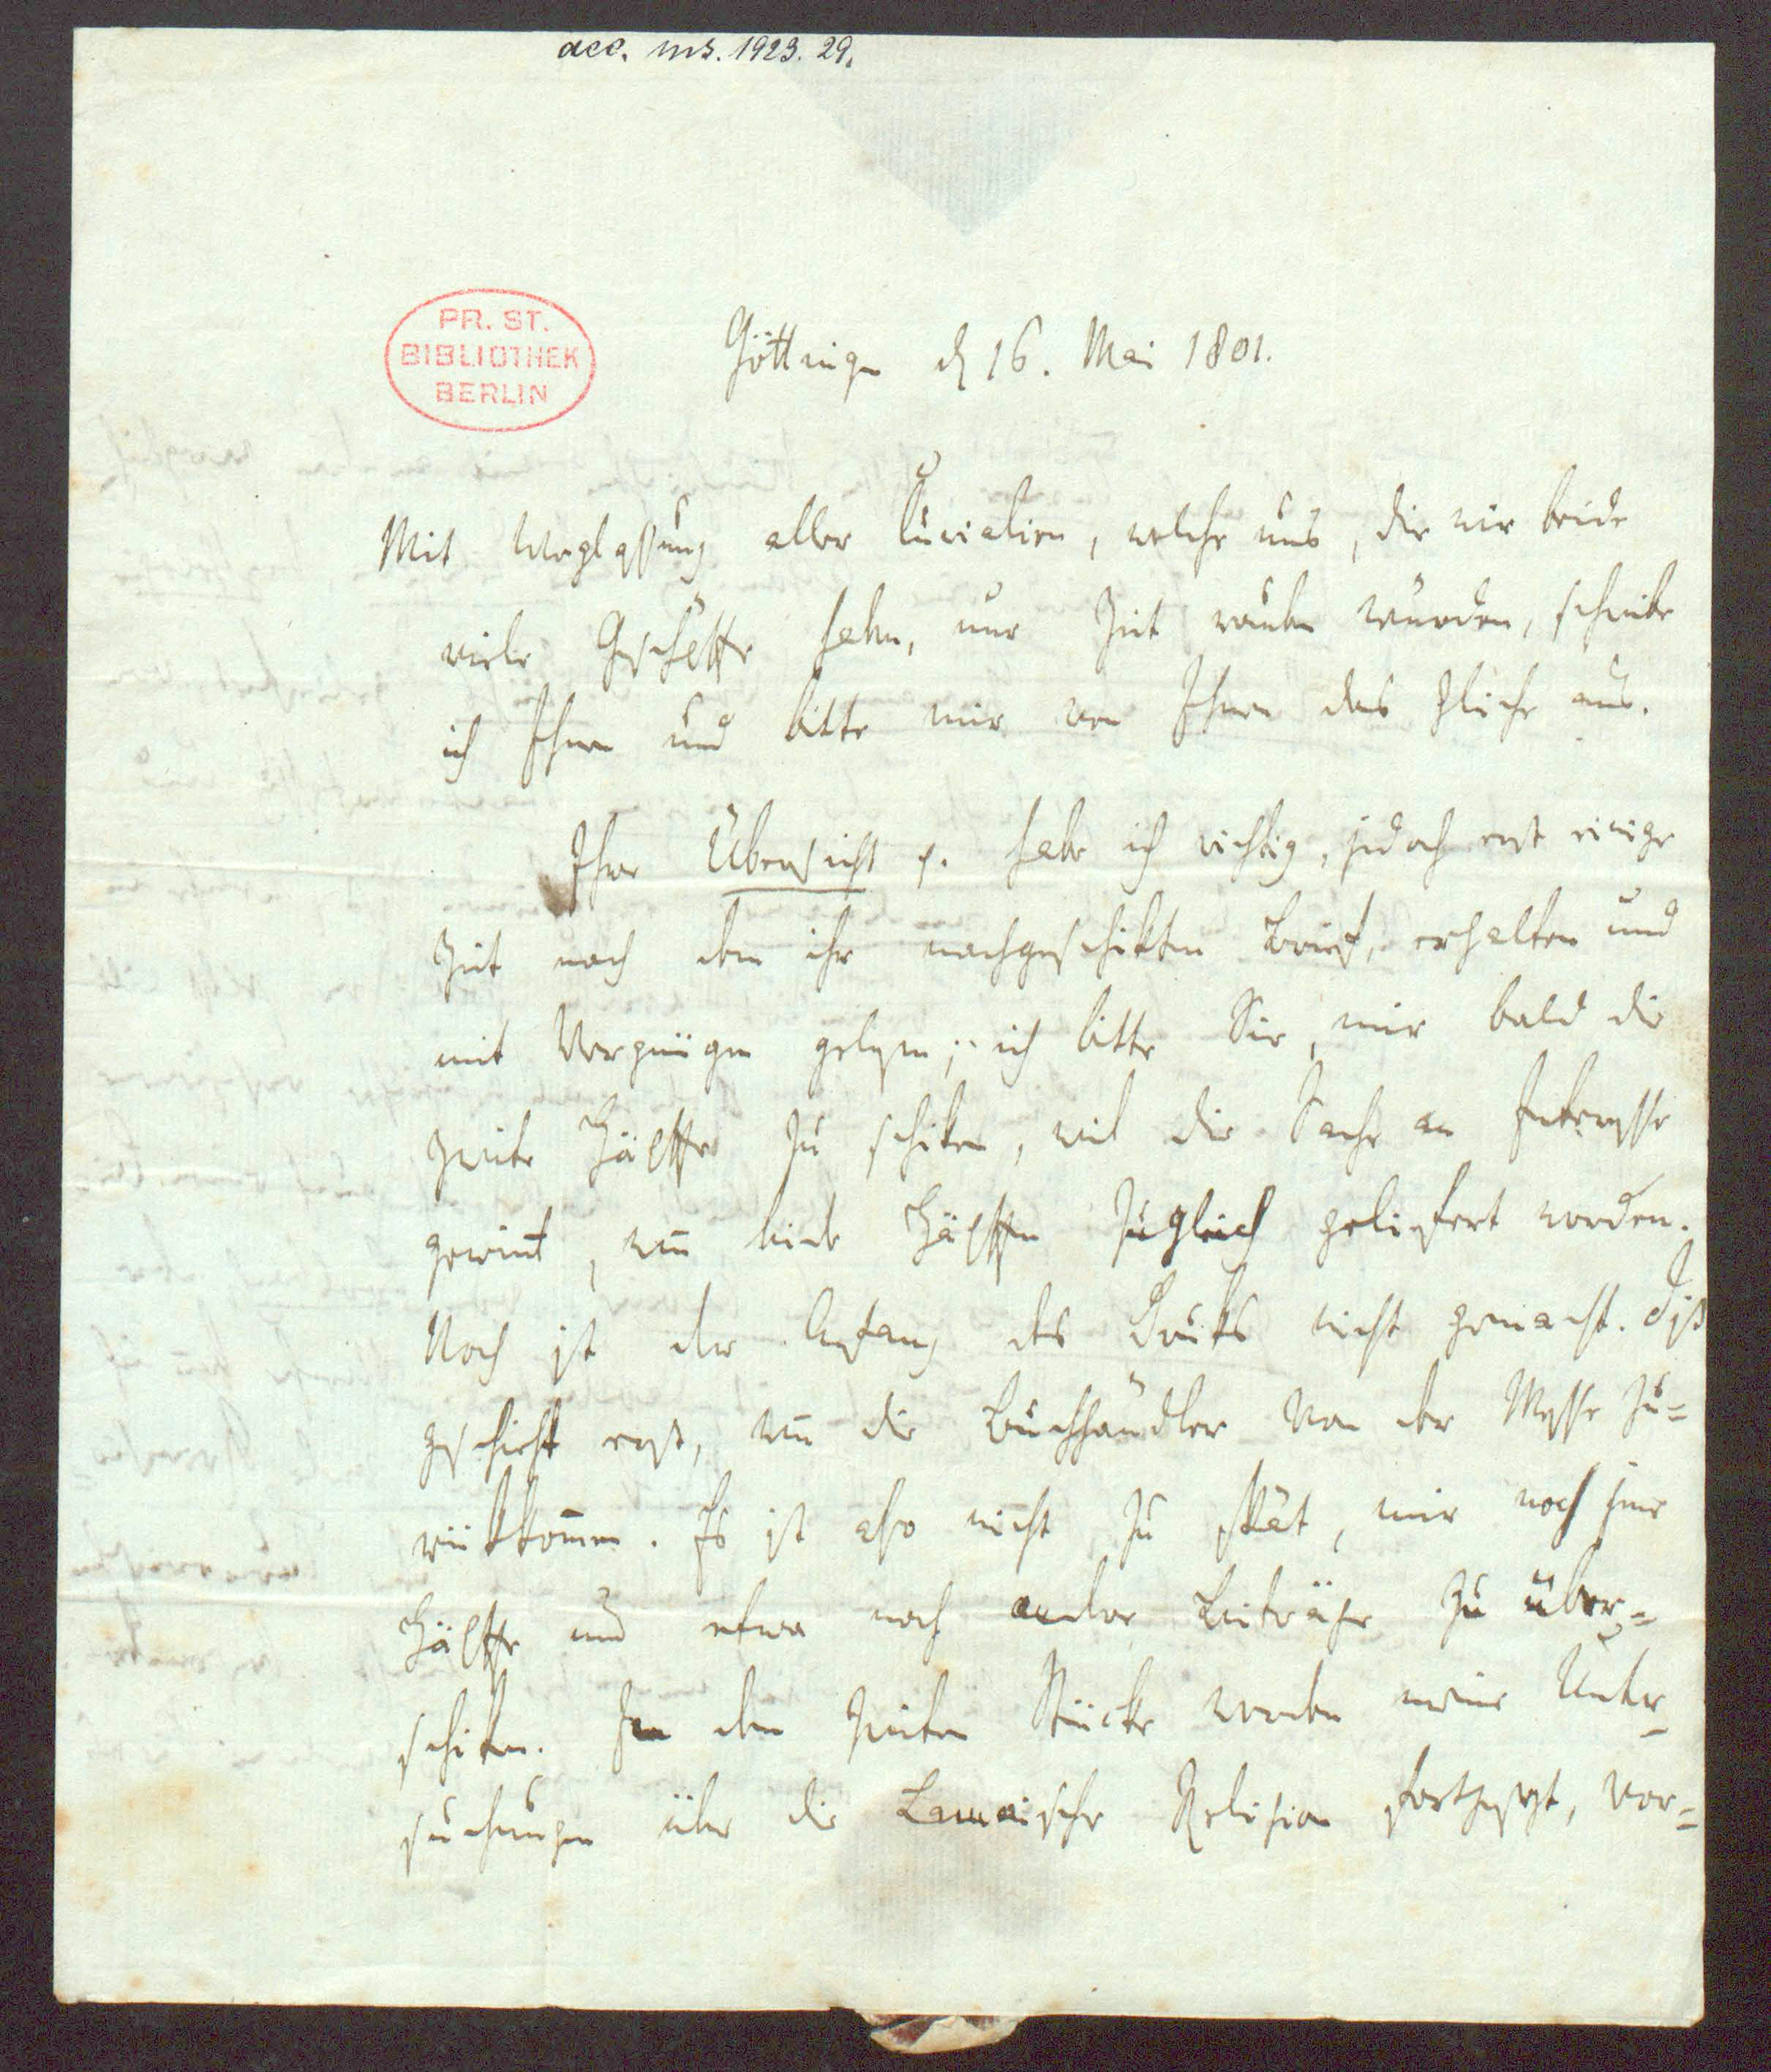 acc. ms. 1923. 29.
PR. ST.
BIBLIOTHEK
BERLIN
Göttingen d 16. Mai 1801.
Mit Weglassung aller Curialien, welche uns, die wir beide
viele Geschäffte haben, nur Zeit rauben würden, schreibe
ich Ihnen und bitte mir von Ihnen das gleiche aus.
Ihre Übersicht p. habe ich richtig, jedoch erst einige
Zeit nach dem ihr nachgeschikten Brief, erhalten und
mit Vergnügen gelesen; ich bitte Sie, mir bald die
zweite Hälffte zu schiken, weil die Sache an Interesse
gewint, wen̄ beide Hälfften zugleich geliefert werden.
Noch ist der Anfang des Druks nicht gemacht. Diß
geschieht erst, wen̄ die Buchhändler von der Messe zu=
rükkom̄en. Es ist also nicht zu spät, mir noch jene
Hälffte und etwa noch andere Beiträge zu über=
schiken. In dem zweiten Stücke werden meine Unter=
suchungen über die Lamaische Religion fortgesezt, vor=